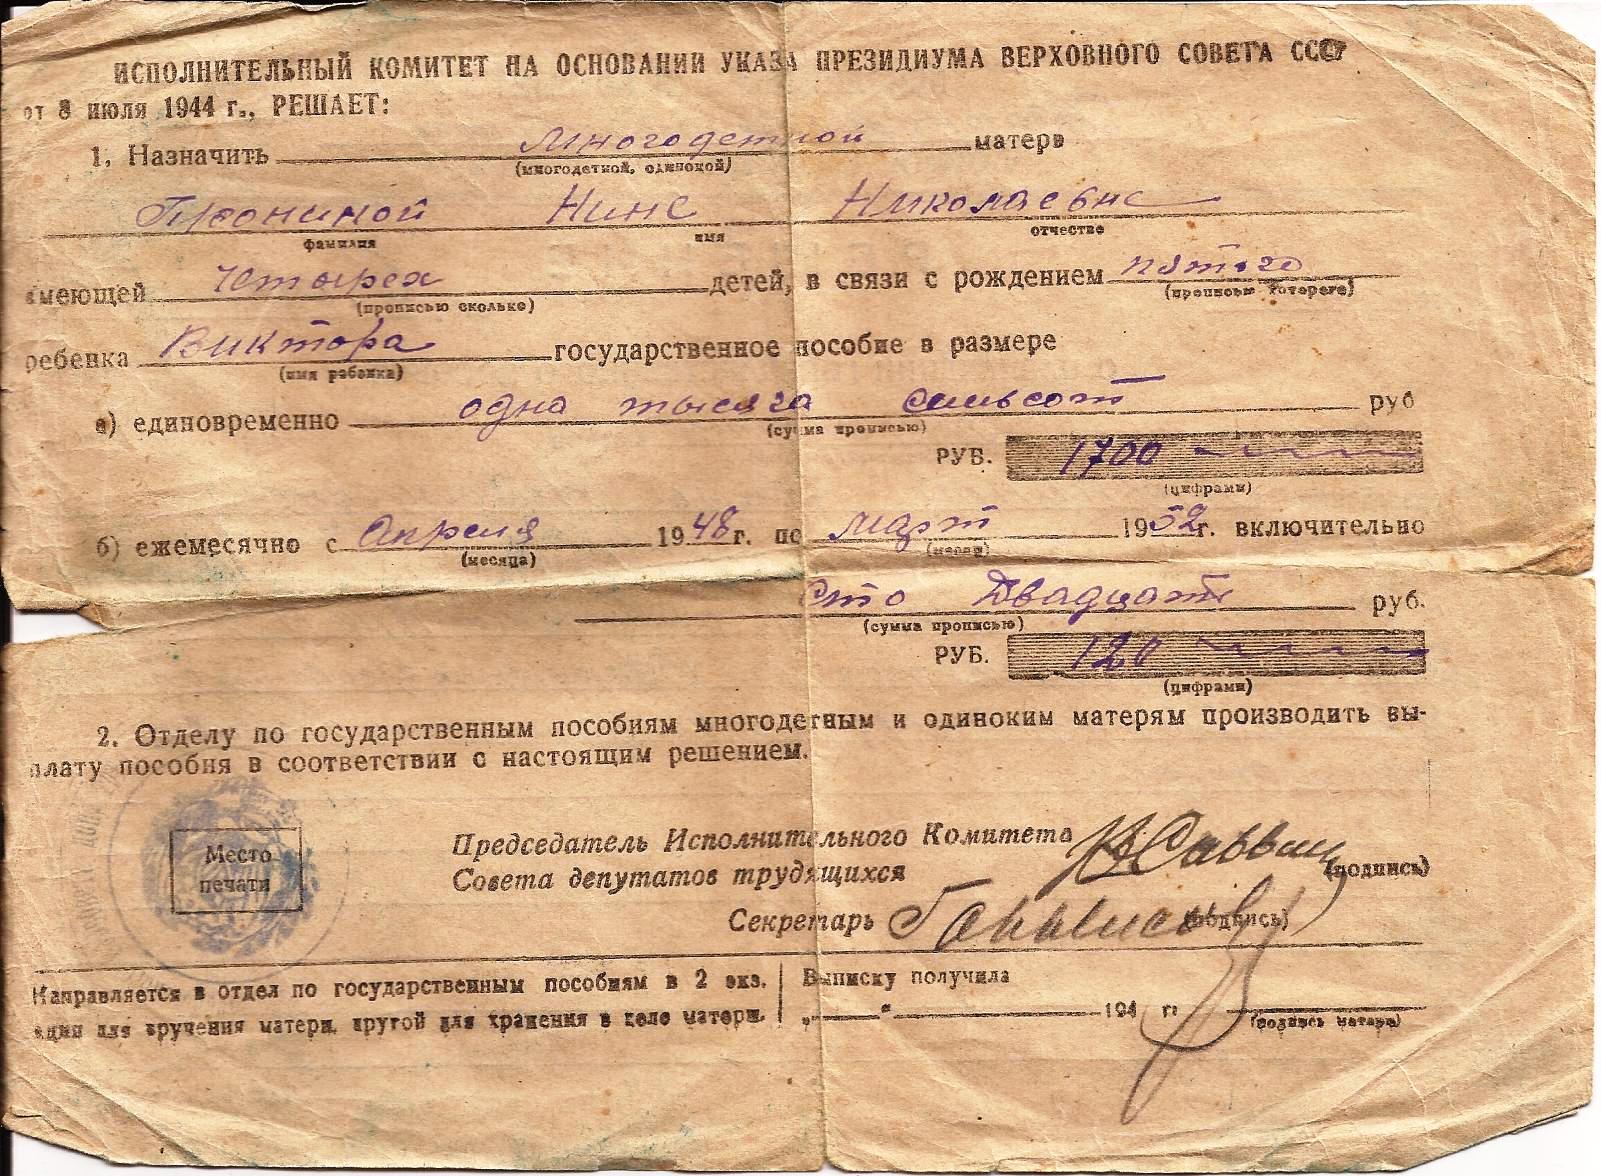 ИСПОЛНИТЕЛЬНЫЙ КОМИТЕТ НА ОСНОВАНИИ УКАЗА ПРЕЗИДИУМА ВЕРХОВНОГО СОВЕТА СССР
от 8 июля 1944 г., РЕШАЕТ:
1. Назначить многодетной матери
(многодетной, одинокой)
Прониной Нине Николаевне
фамилия имя отчество
имеющей четырех детей, в связи с рождением пятого
(прописью сколько) (прописью которого)
ребенка Виктора государственное пособие в размере
(имя ребенка)
а) единовременно одна тысяча семьсот руб
(сумма прописью)
РУБ. 1700
(цифрами)
б) ежемесячно с Апреля 1948 г. по март 1952 г. включительно
(месяца) (месяц)
сто двадцать руб.
(сумма прописью)
РУБ. 120
(цифрами)
2. Отделу по государственным пособиям многодетным и одиноким матерям производить вы-
плату пособия в соответствии с настоящим решением.
Место
печати
Председатель Исполнительного Комитета
Совета депутатов трудящихся (подпись)
Секретарь (подпись)
Направляется в отдел по государственным пособиям в 2 экз.
один для вручения матери, другой для хранения в деле матери.
Выписку получила
„ “ 194 г.
(подпись матери)